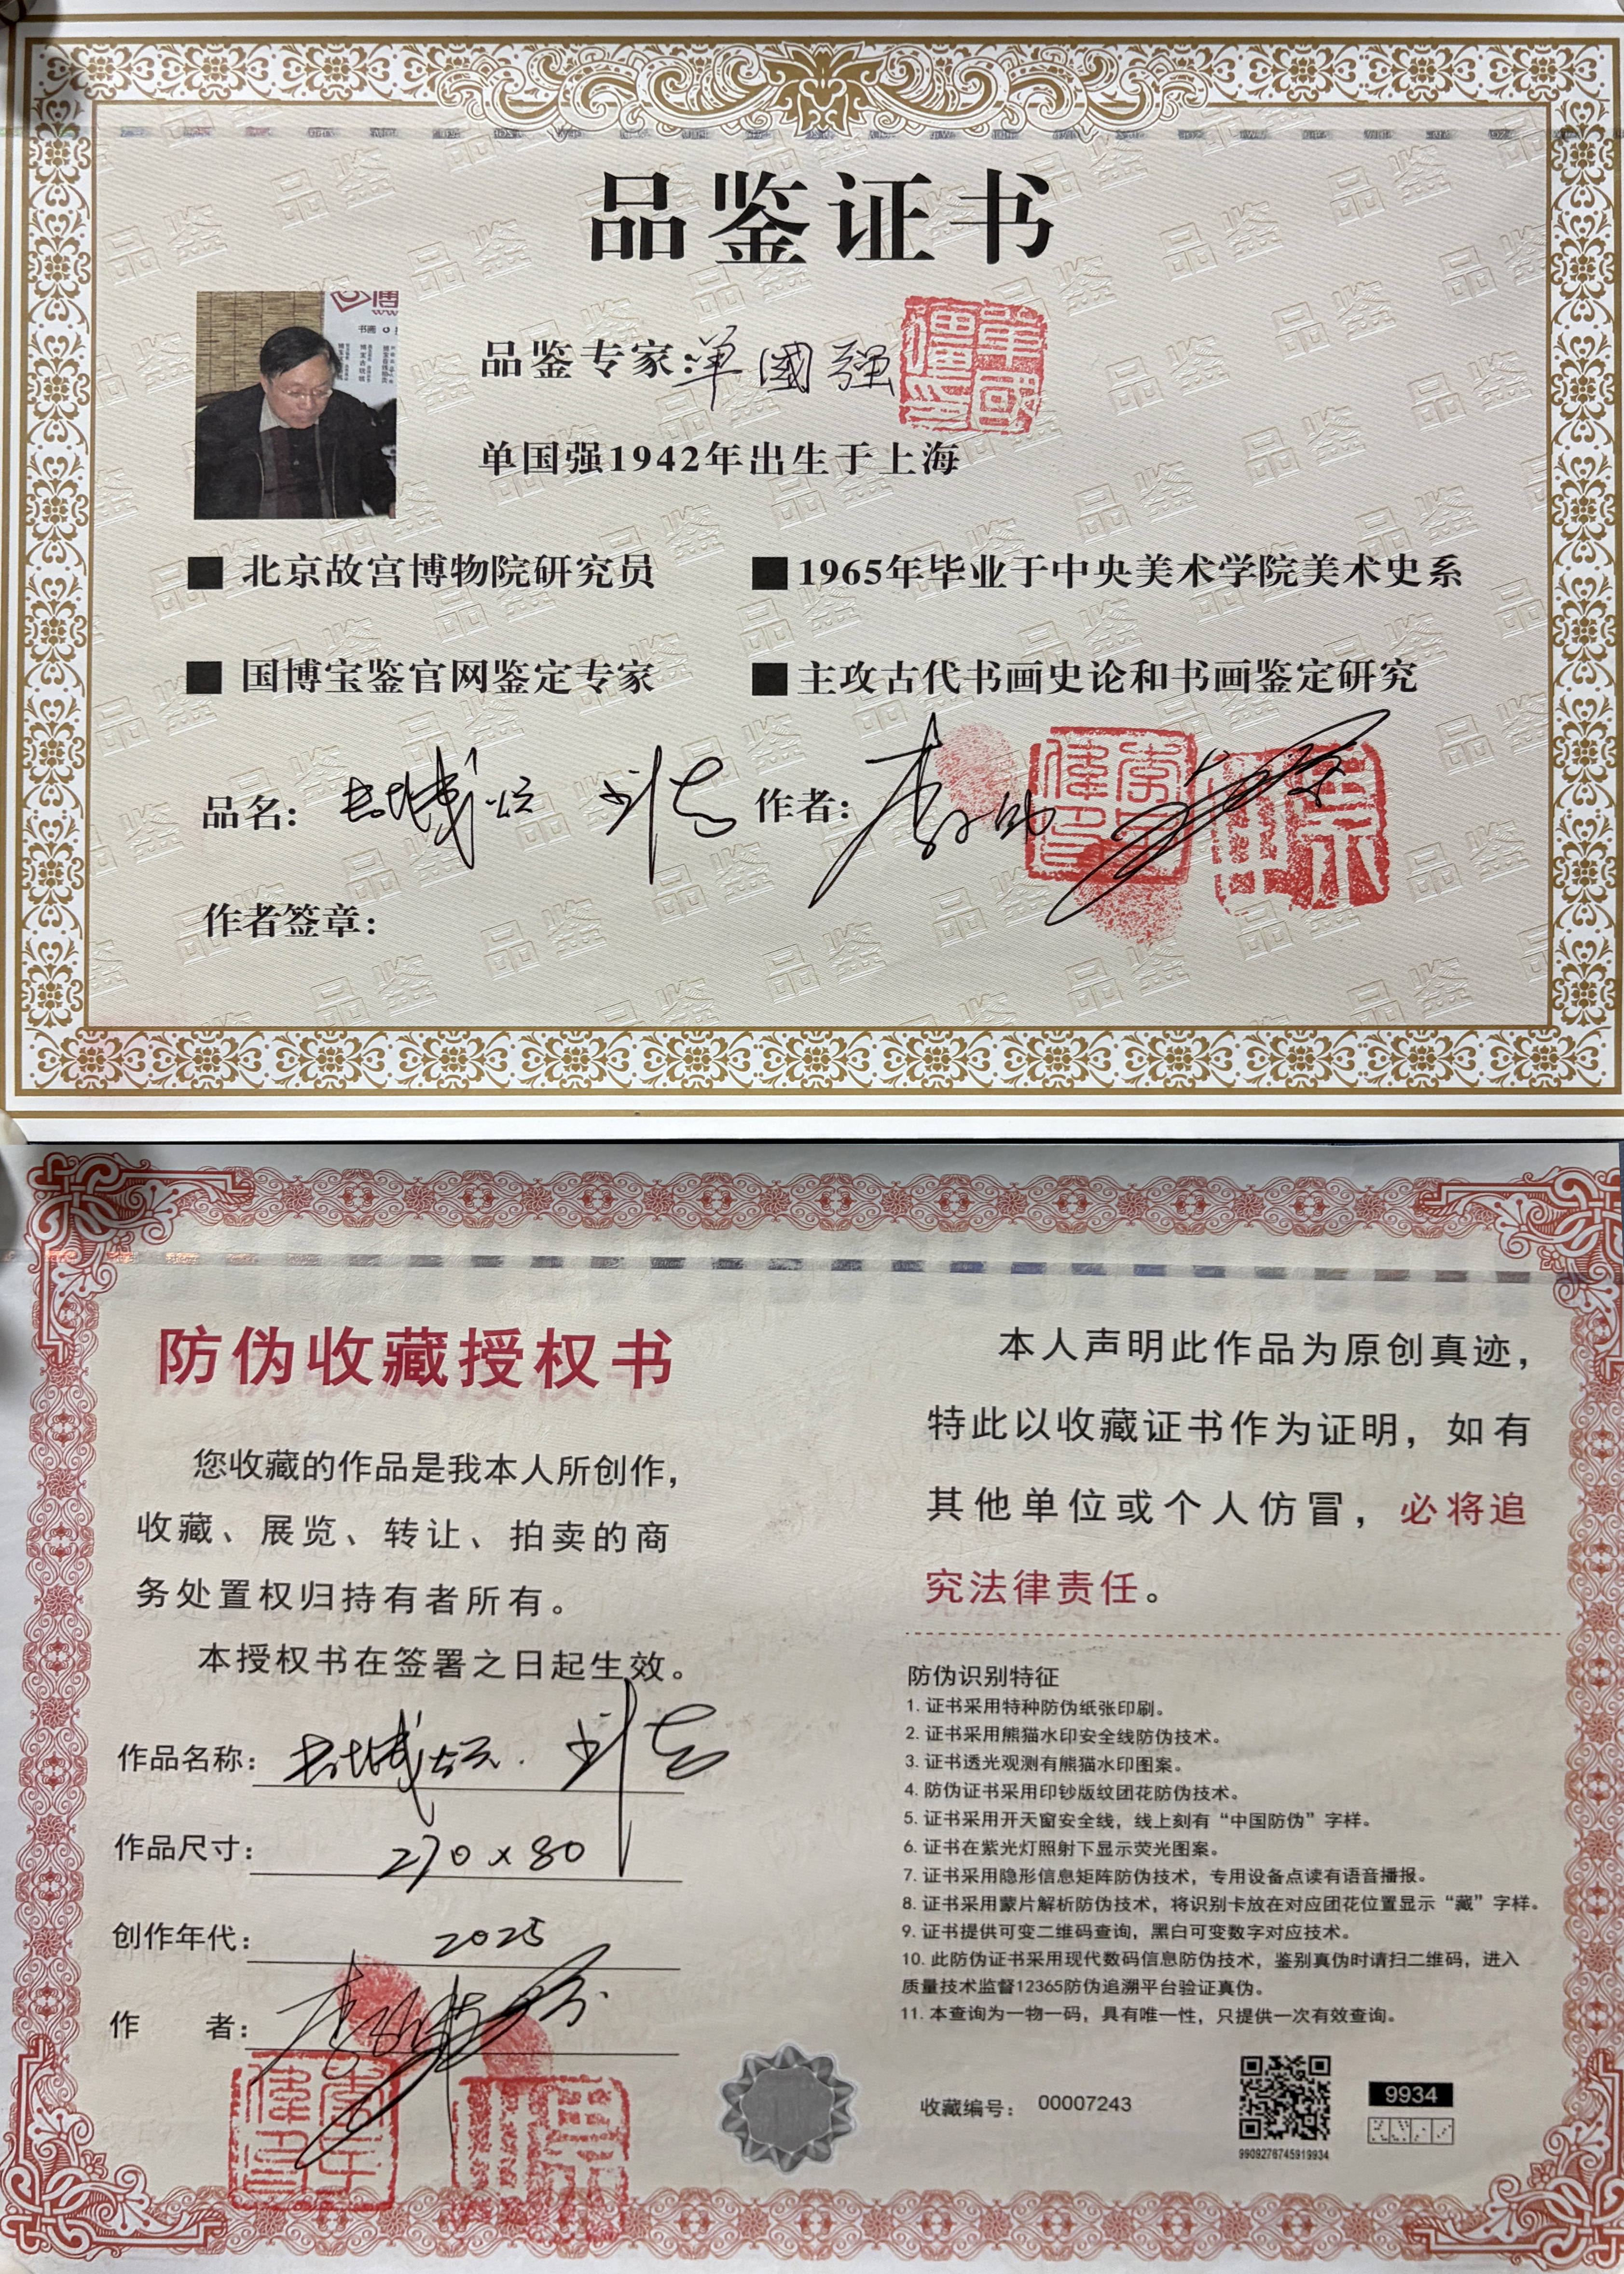 品鉴证书
品鉴专家:单國强
单国强1942年出生于上海
■ 北京故宫博物院研究员
■ 1965年毕业于中央美术学院美术史系
■ 国博宝鉴官网鉴定专家
■ 主攻古代书画史论和书画鉴定研究
品名:
作者:
作者签章:
防伪收藏授权书
您收藏的作品是我本人所创作,
收藏、展览、转让、拍卖的商
务处置权归持有者所有。
本授权书在签署之日起生效。
作品名称:
作品尺寸: 270×80
创作年代: 2025
作 者:
本人声明此作品为原创真迹,
特此以收藏证书作为证明,如有
其他单位或个人仿冒,必将追
究法律责任。
防伪识别特征
1. 证书采用特种防伪纸张印刷。
2. 证书采用熊猫水印安全线防伪技术。
3. 证书透光观测有熊猫水印图案。
4. 防伪证书采用印钞版纹团花防伪技术。
5. 证书采用开天窗安全线,线上刻有“中国防伪”字样。
6. 证书在紫光灯照射下显示荧光图案。
7. 证书采用隐形信息矩阵防伪技术,专用设备点读有语音播报。
8. 证书采用蒙片解析防伪技术,将识别卡放在对应团花位置显示“藏”字样。
9. 证书提供可变二维码查询,黑白可变数字对应技术。
10. 此防伪证书采用现代数码信息防伪技术,鉴别真伪时请扫二维码,进入
质量技术监督12365防伪追溯平台验证真伪。
11. 本查询为一物一码,具有唯一性,只提供一次有效查询。
收藏编号: 00007243
9934
9909276745919934